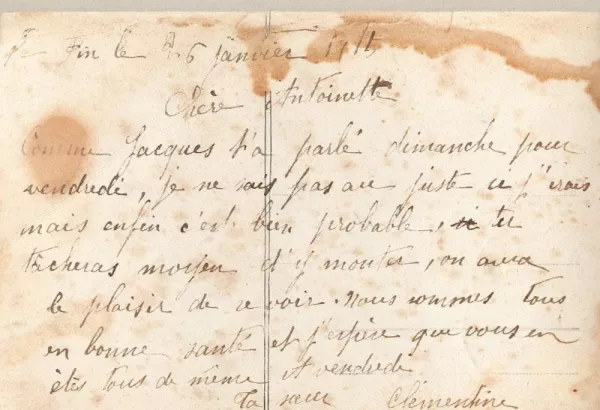 Fin le 26 janvier
Chère Antoinette
Comme Jacques t'a parlé dimanche pour
vendredi, je ne sais pas au juste si j'irais
mais enfin c'est bien probable, tu
tâcheras moyen d'y monter, on aura
le plaisir de se voir. Nous sommes tous
en bonne santé et j'espère que vous en
êtes tous de même A vendredi
Ta sœur Clémentine